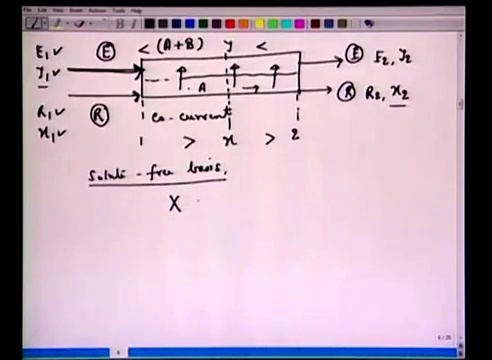 E₁ ✓ (E) < (A+B) y < (E) E₂, y₂
y₁ ✓
A
R₁ ✓ (R) (R) R₂, x₂
x₁ ✓ co-current
1 > x > 2
Solute-free basis.
X